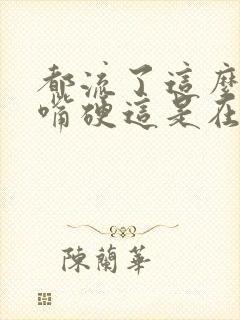 都流了這麼
嘴硬這是在
陳蘭華